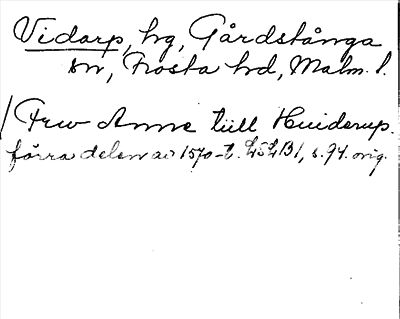 Vidarp, hg, Gårdstånga
sn, Frosta hd, Malm. l.
/ Frw Anne till Huiderup.
förra delen av 1570-t. s. 94. orig.